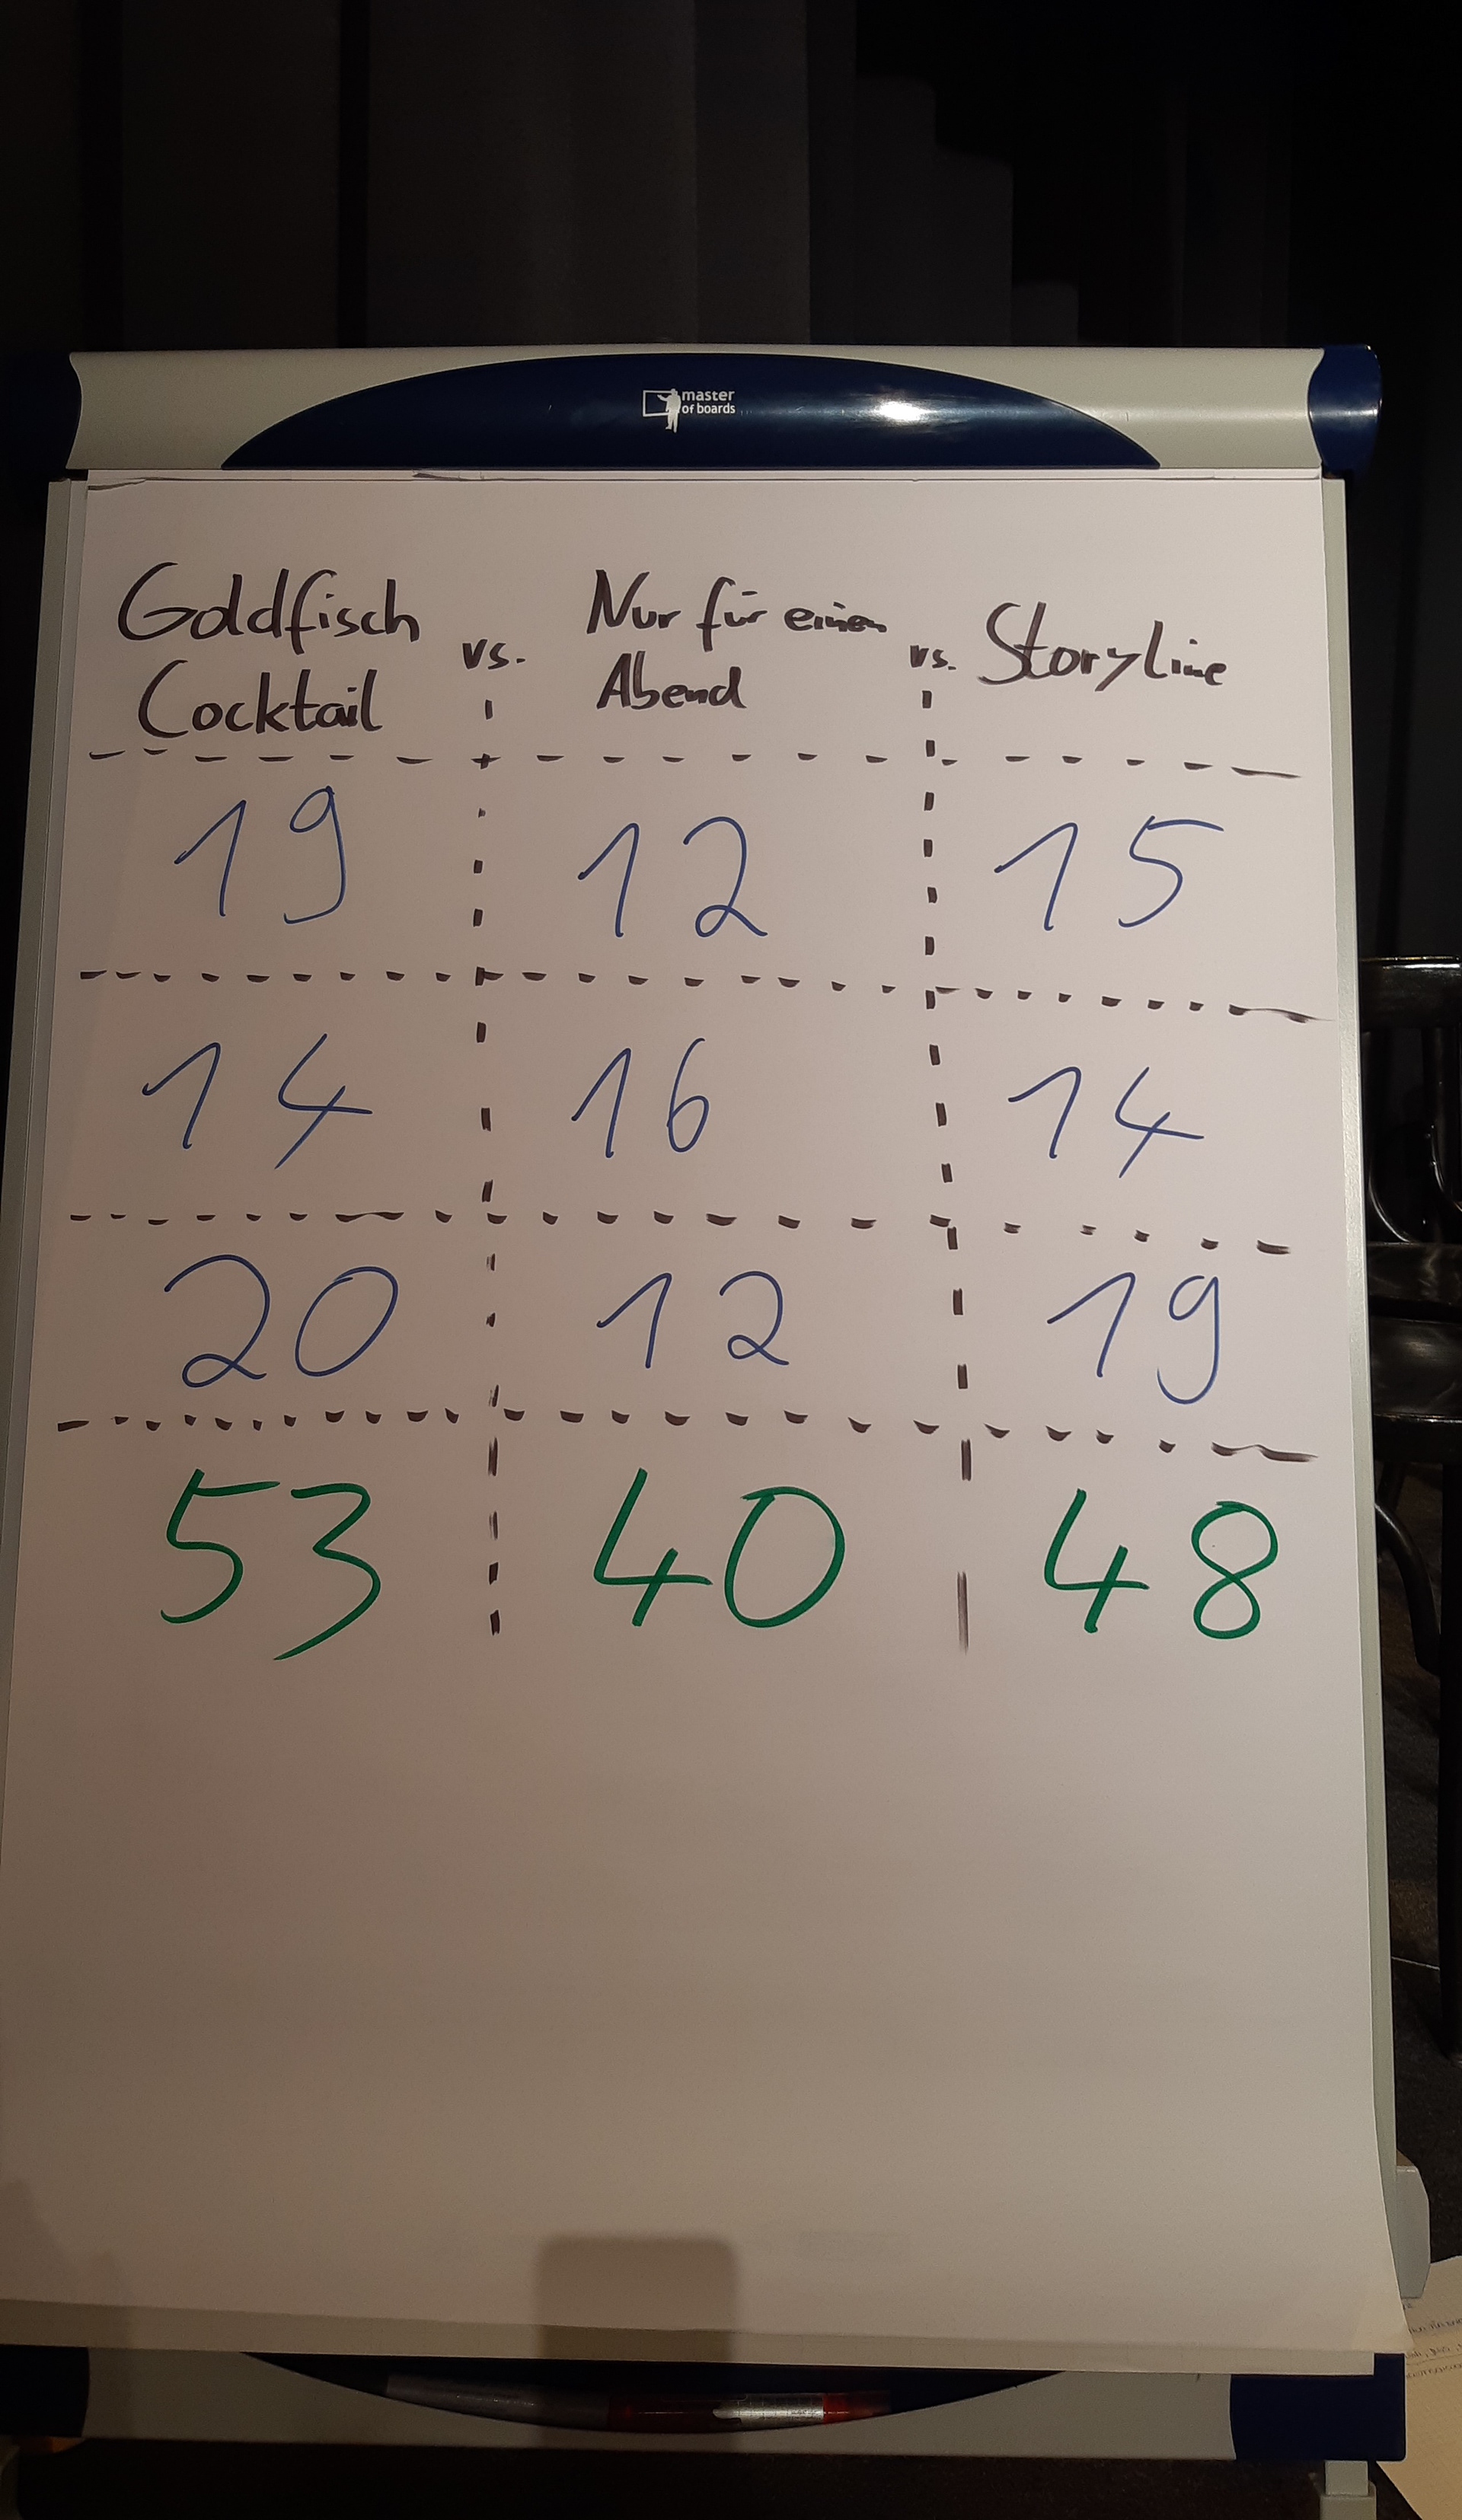 master
of boards
Goldfisch
Cocktail
vs.
Nur für einen
Abend
vs.
Storyline
19 12 15
14 16 14
20 12 19
53 40 48